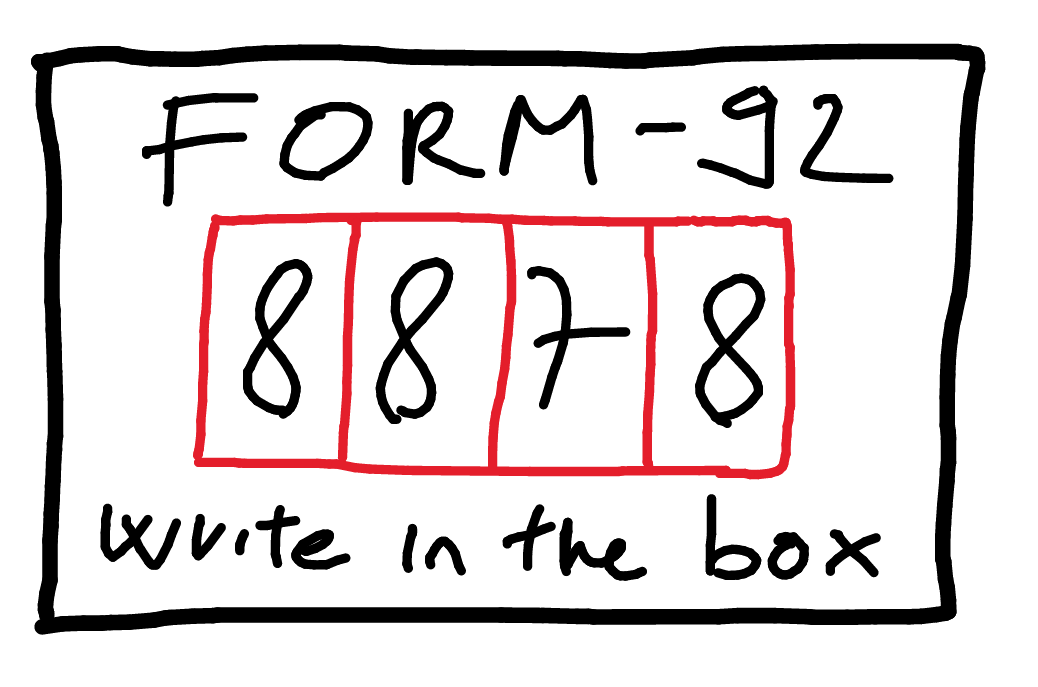 FORM-92
8878
write in the box